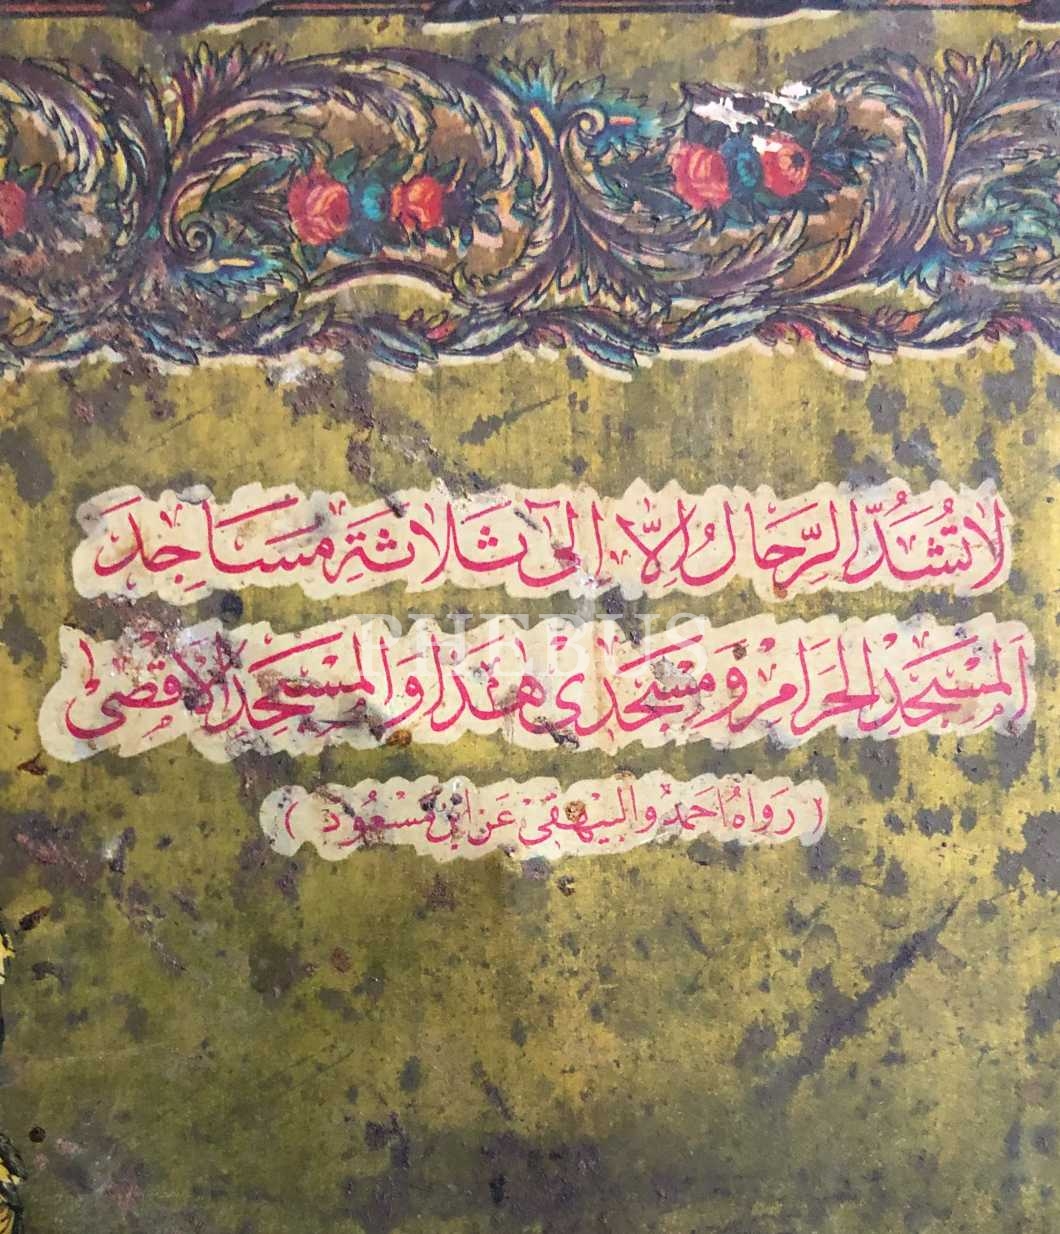 لَا تُشَدُّ الرِّحَالُ اِلَّا اِلٰى ثَلَاثَةِ مَسَاجِدَ
اَلْمَسْجِدِ الْحَرَامِ وَ مَسْجِدِى هٰذَا وَالْمَسْجِدِ الْاَقْصٰى
PHEBUS
(رَوَاهُ اَحْمَدُ وَالْبَيْهَقِىُّ عَنِ ابْنِ مَسْعُود)